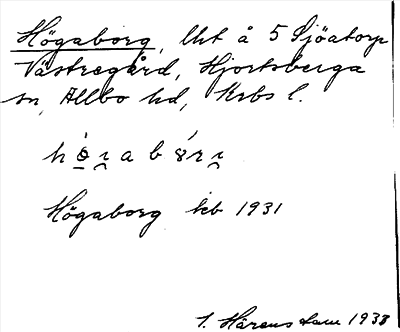 Högaborg, lht å 5 Sjöatorp
Västregård, Hjortsberga
sn, Allbo hd, Krbs l.
Högaborg kb 1931
1. Härens dam 1938